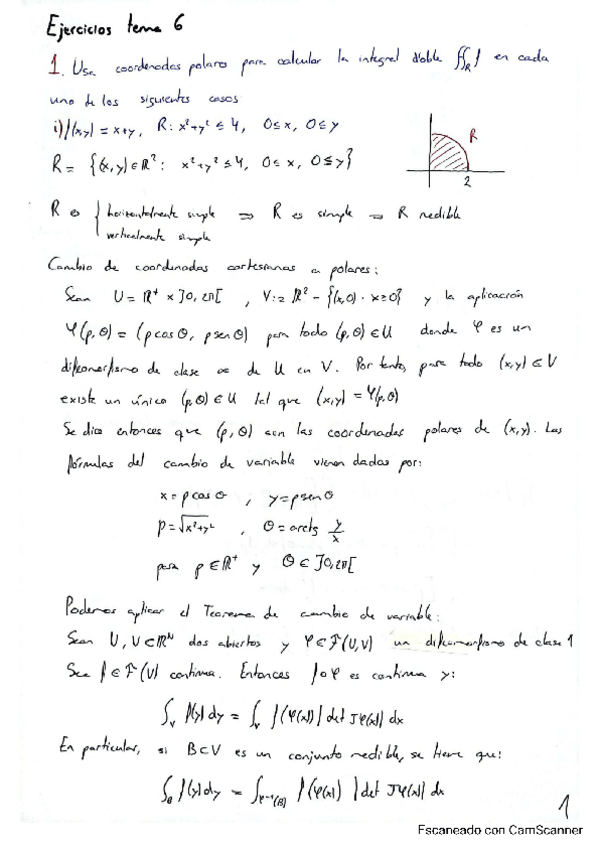 Ejercicios tema 6
1. Usa coordenadas polares para calcular la integral doble ∬_R f en cada
uno de los siguientes casos
i) f(x,y) = x+y, R: x²+y² ≤ 4, 0≤x, 0≤y
R
2
R = {(x,y)∈ℝ²: x²+y² ≤ 4, 0≤x, 0≤y}
R es { horizontalmente simple ⇒ R es simple ⇒ R medible
verticalmente simple
Cambio de coordenadas cartesianas a polares:
Sean U = ℝ⁺ × ]0, 2π[ , V:= ℝ² - {(x,0) : x≥0} y la aplicación
φ(ρ,θ) = (ρ cos θ, ρ sen θ) para todo (ρ,θ) ∈ U donde φ es un
difeomorfismo de clase ∞ de U en V. Por tanto, para todo (x,y) ∈ V
existe un único (ρ,θ) ∈ U tal que (x,y) = φ(ρ,θ)
Se dice entonces que (ρ,θ) son las coordenadas polares de (x,y). Las
fórmulas del cambio de variable vienen dadas por:
x = ρ cos θ , y = ρ sen θ
ρ = √x²+y² , θ = arctg y/x
para ρ ∈ ℝ⁺ y θ ∈ ]0, 2π[
Podemos aplicar el Teorema de cambio de variable:
Sean U, V ⊂ ℝᴺ dos abiertos y φ ∈ F(U,V) un difeomorfismo de clase 1
Sea f ∈ F(V) continua. Entonces f∘φ es continua y:
∫_V f(y) dy = ∫_U f(φ(x)) |det Jφ(x)| dx
En particular, si B⊂V es un conjunto medible, se tiene que:
∫_B f(y) dy = ∫_φ⁻¹(B) f(φ(x)) |det Jφ(x)| dx
1
Escaneado con CamScanner